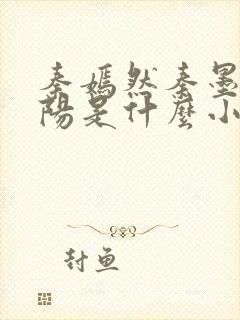 秦嫣然秦墨
阳是什麼小
封鱼